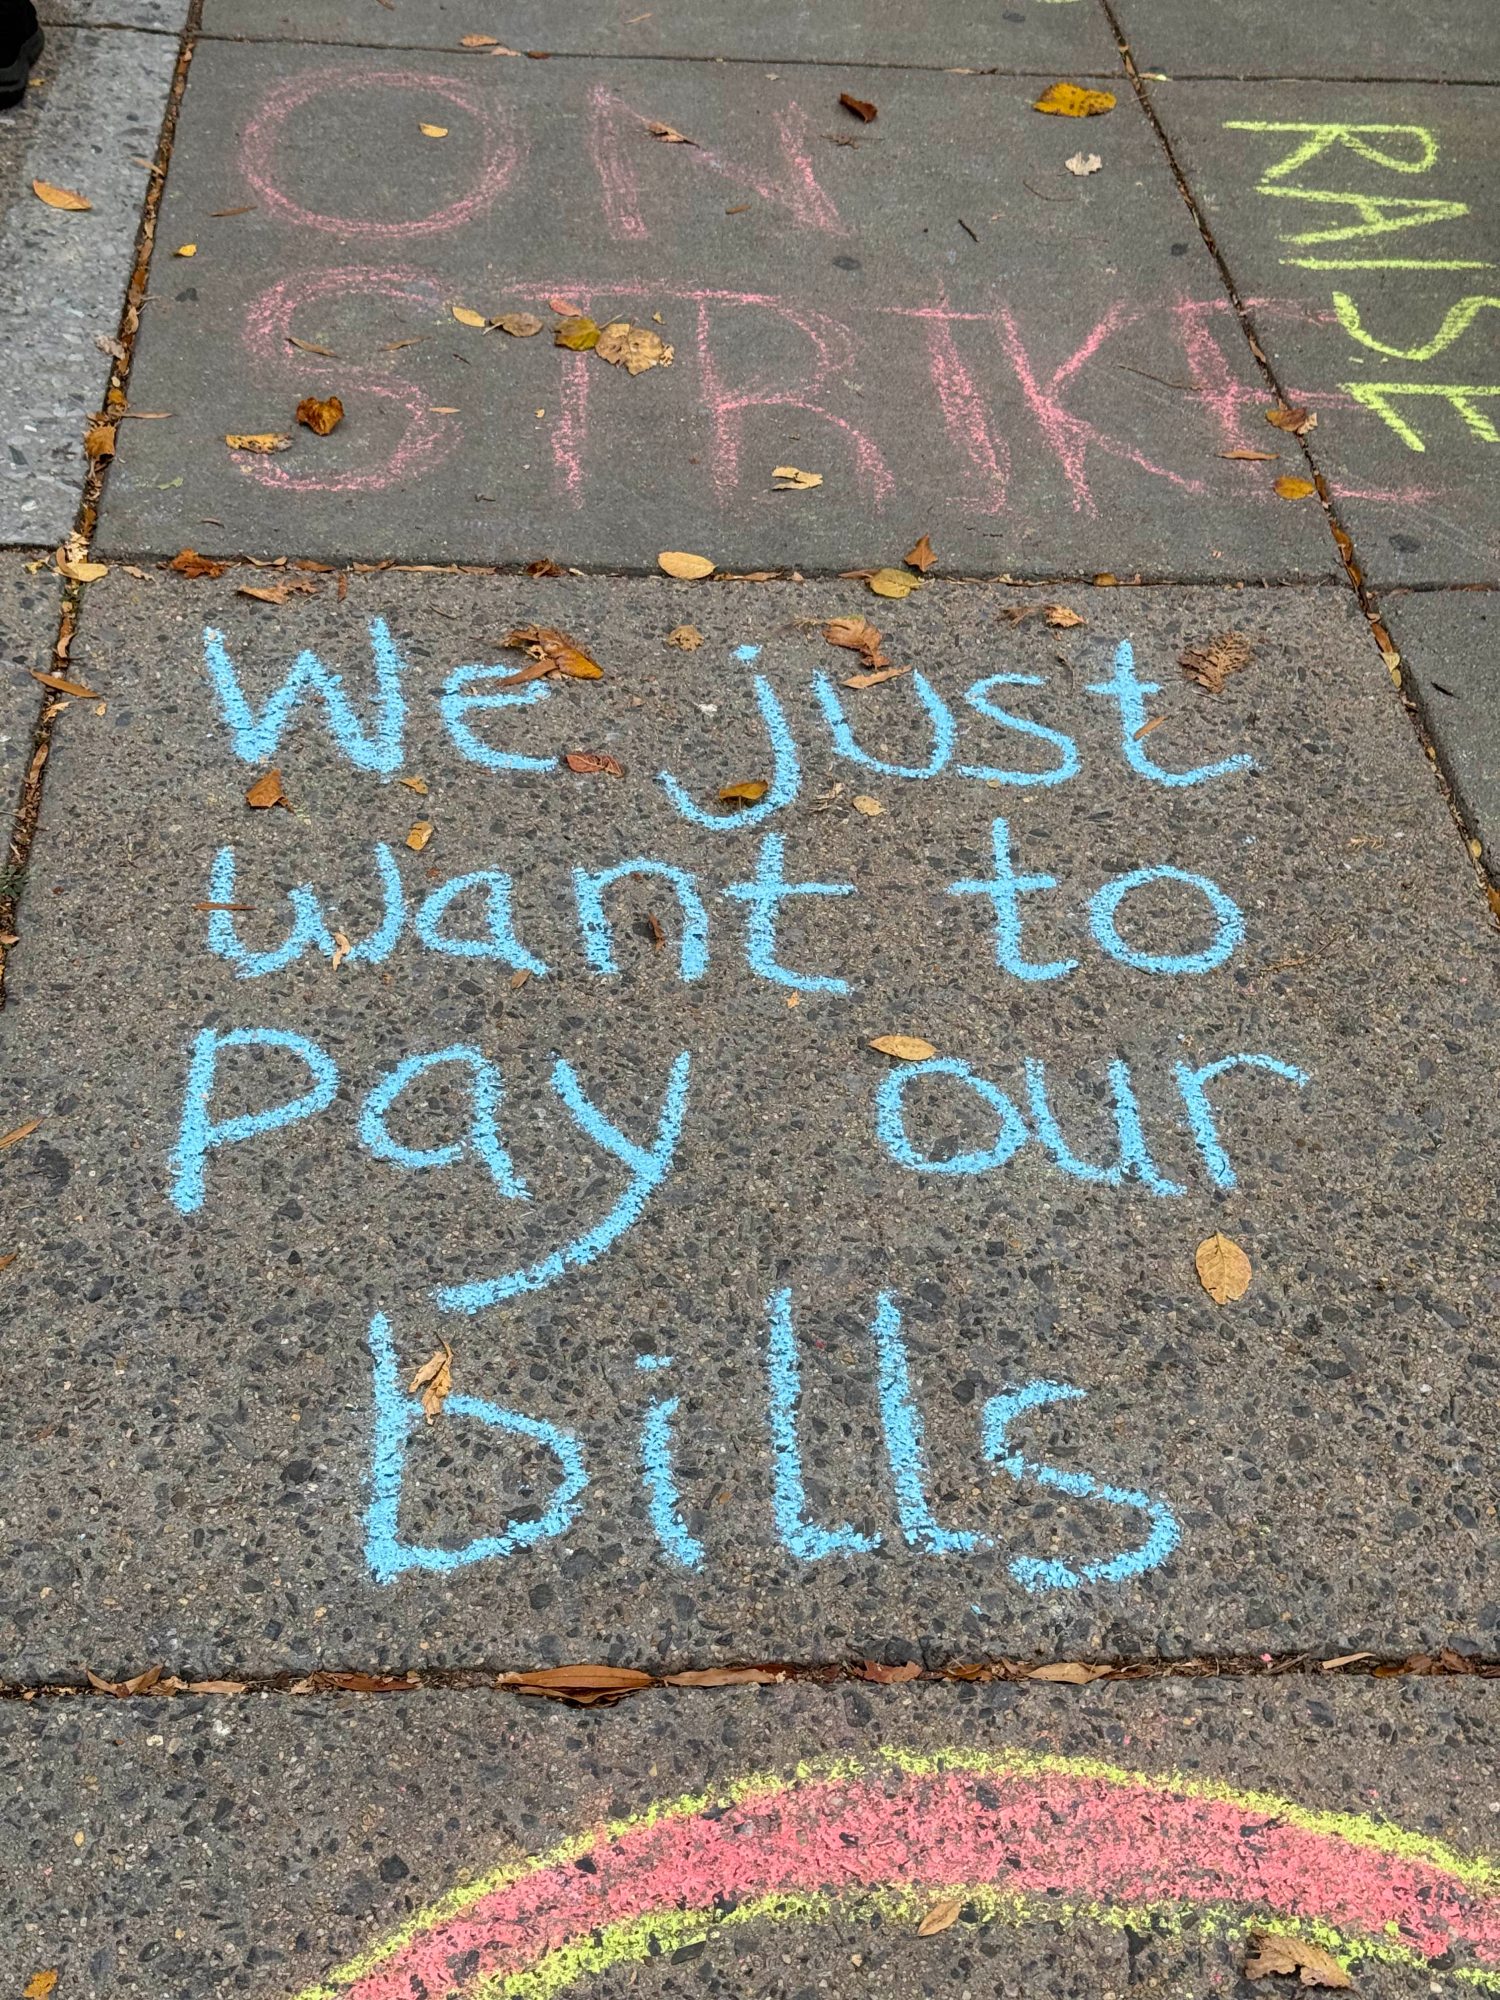 ON
STRIKE
RAISE
We just
want to
pay our
bills